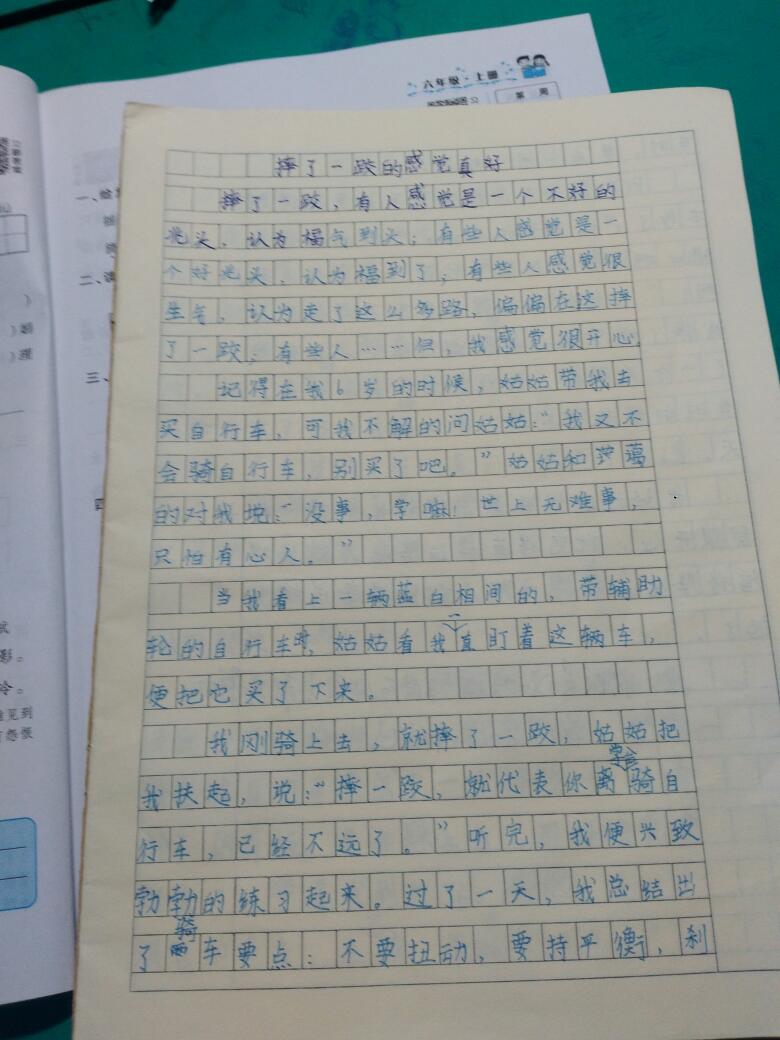 六年级·上册
第 周
一、
二、
三、
四
摔了一跤的感觉真好
摔了一跤，有人感觉是一个不好的
兆头，认为福气到头；有些人感觉是一
个好兆头，认为福到了；有些人感觉很
生气，认为走了这么多路，偏偏在这摔
了一跤；有些人……但，我感觉很开心。
记得在我6岁的时候，姑姑带我去
买自行车，可我不解的问姑姑：“我又不
会骑自行车，别买了吧。”姑姑和蔼
的对我说：“没事，学嘛！世上无难事，
只怕有心人。”
当我看上一辆蓝白相间的，带辅助
轮的自行车时，姑姑看我一直盯着这辆车，
便把它买了下来。
我刚骑上去，就摔了一跤，姑姑把
我扶起，说：“摔一跤，就代表你离学会骑自
行车，已经不远了。”听完，我便兴致
勃勃的练习起来。过了一天，我总结出
了骑车要点：不要扭动，要持平衡，刹